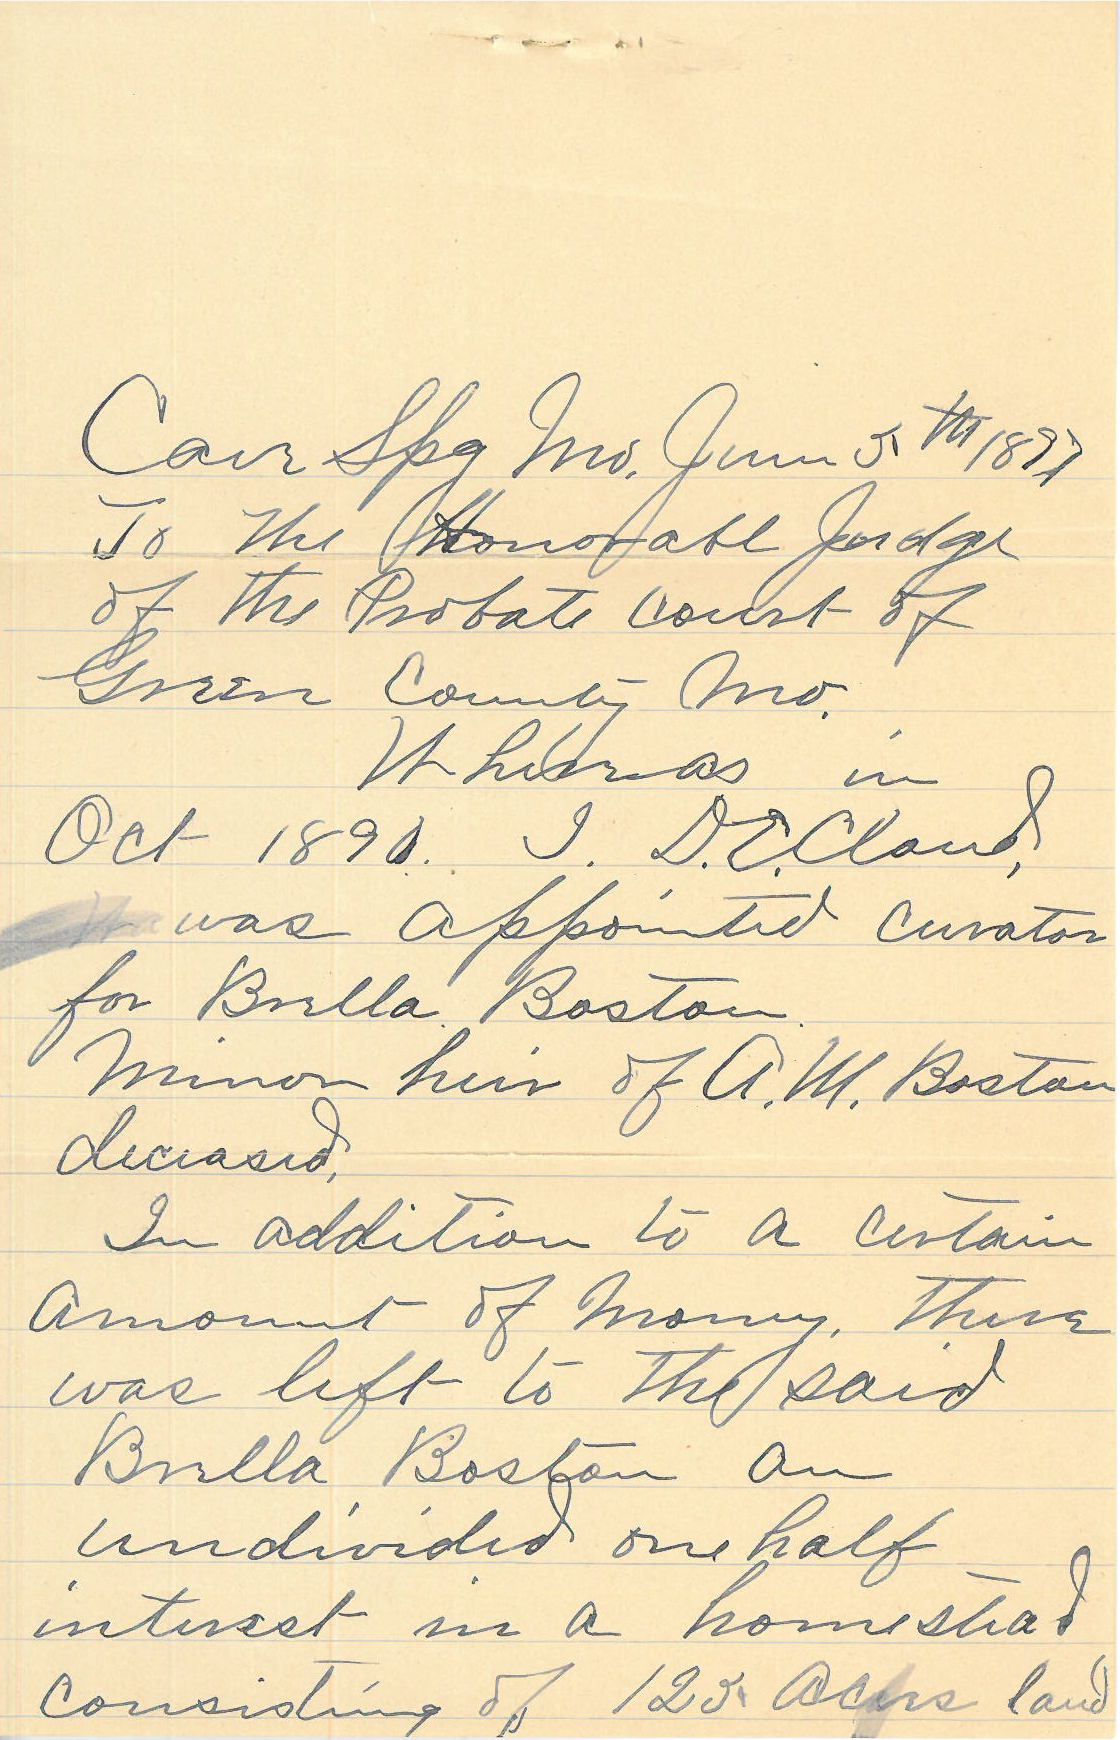 Cave Spg Mo. June 5th 1897
To the Honorable Judge
of the Probate court of
Green County Mo.
Whereas in
Oct 1890. I. D.E. Cloud,
was appointed curator
for Brella Boston.
Minor heir of A.M. Boston
deceased,
In addition to a certain
amount of money, there
was left to the said
Brella Boston an
undivided one half
interest in a homestead
consisting of 125 Acres land